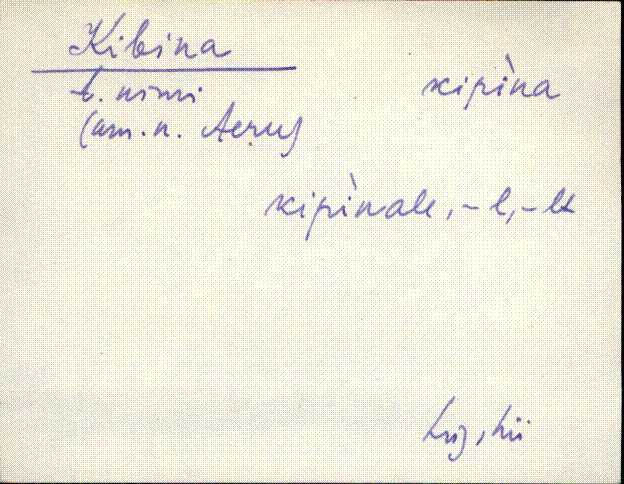 Kibina
t. nimi
(am. n. Aeru)
kipìna
kipìnale, -l, -lt
Lüg, Lii